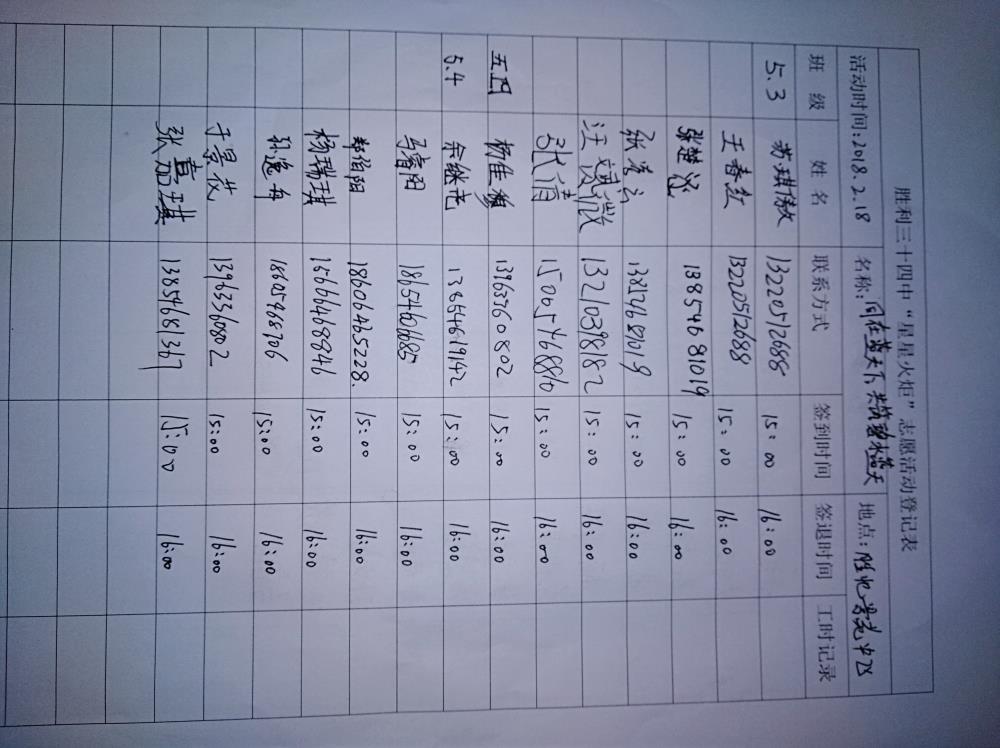 胜利三十四中“星星火炬”志愿活动登记表
活动时间:2018.2.18 名称:同在蓝天下 共筑碧水蓝天 地点:胜
班 级 姓 名 联系方式 签到时间 签退时间 工时记录
5.3 苏琪傲 13220512688 15:00 16:00
王春红 13220512688 15:00 16:00
张楚 13854681019 15:00 16:00
张 15:00 16:00
汪 微 13210398182 15:00 16:00
张倩 15005468810 15:00 16:00
五四 杨佳 13963760802 15:00 16:00
5.4 余继尧 13854619142 15:00 16:00
马睿阳 18654606685 15:00 16:00
郭伯阳 18606465228. 15:00 16:00
杨瑞琪 15666468846 15:00 16:00
孙逸舟 18605468706 15:00 16:00
于景花 13963360802 15:00 16:00
张 琪 13854681367 15:00 16:00